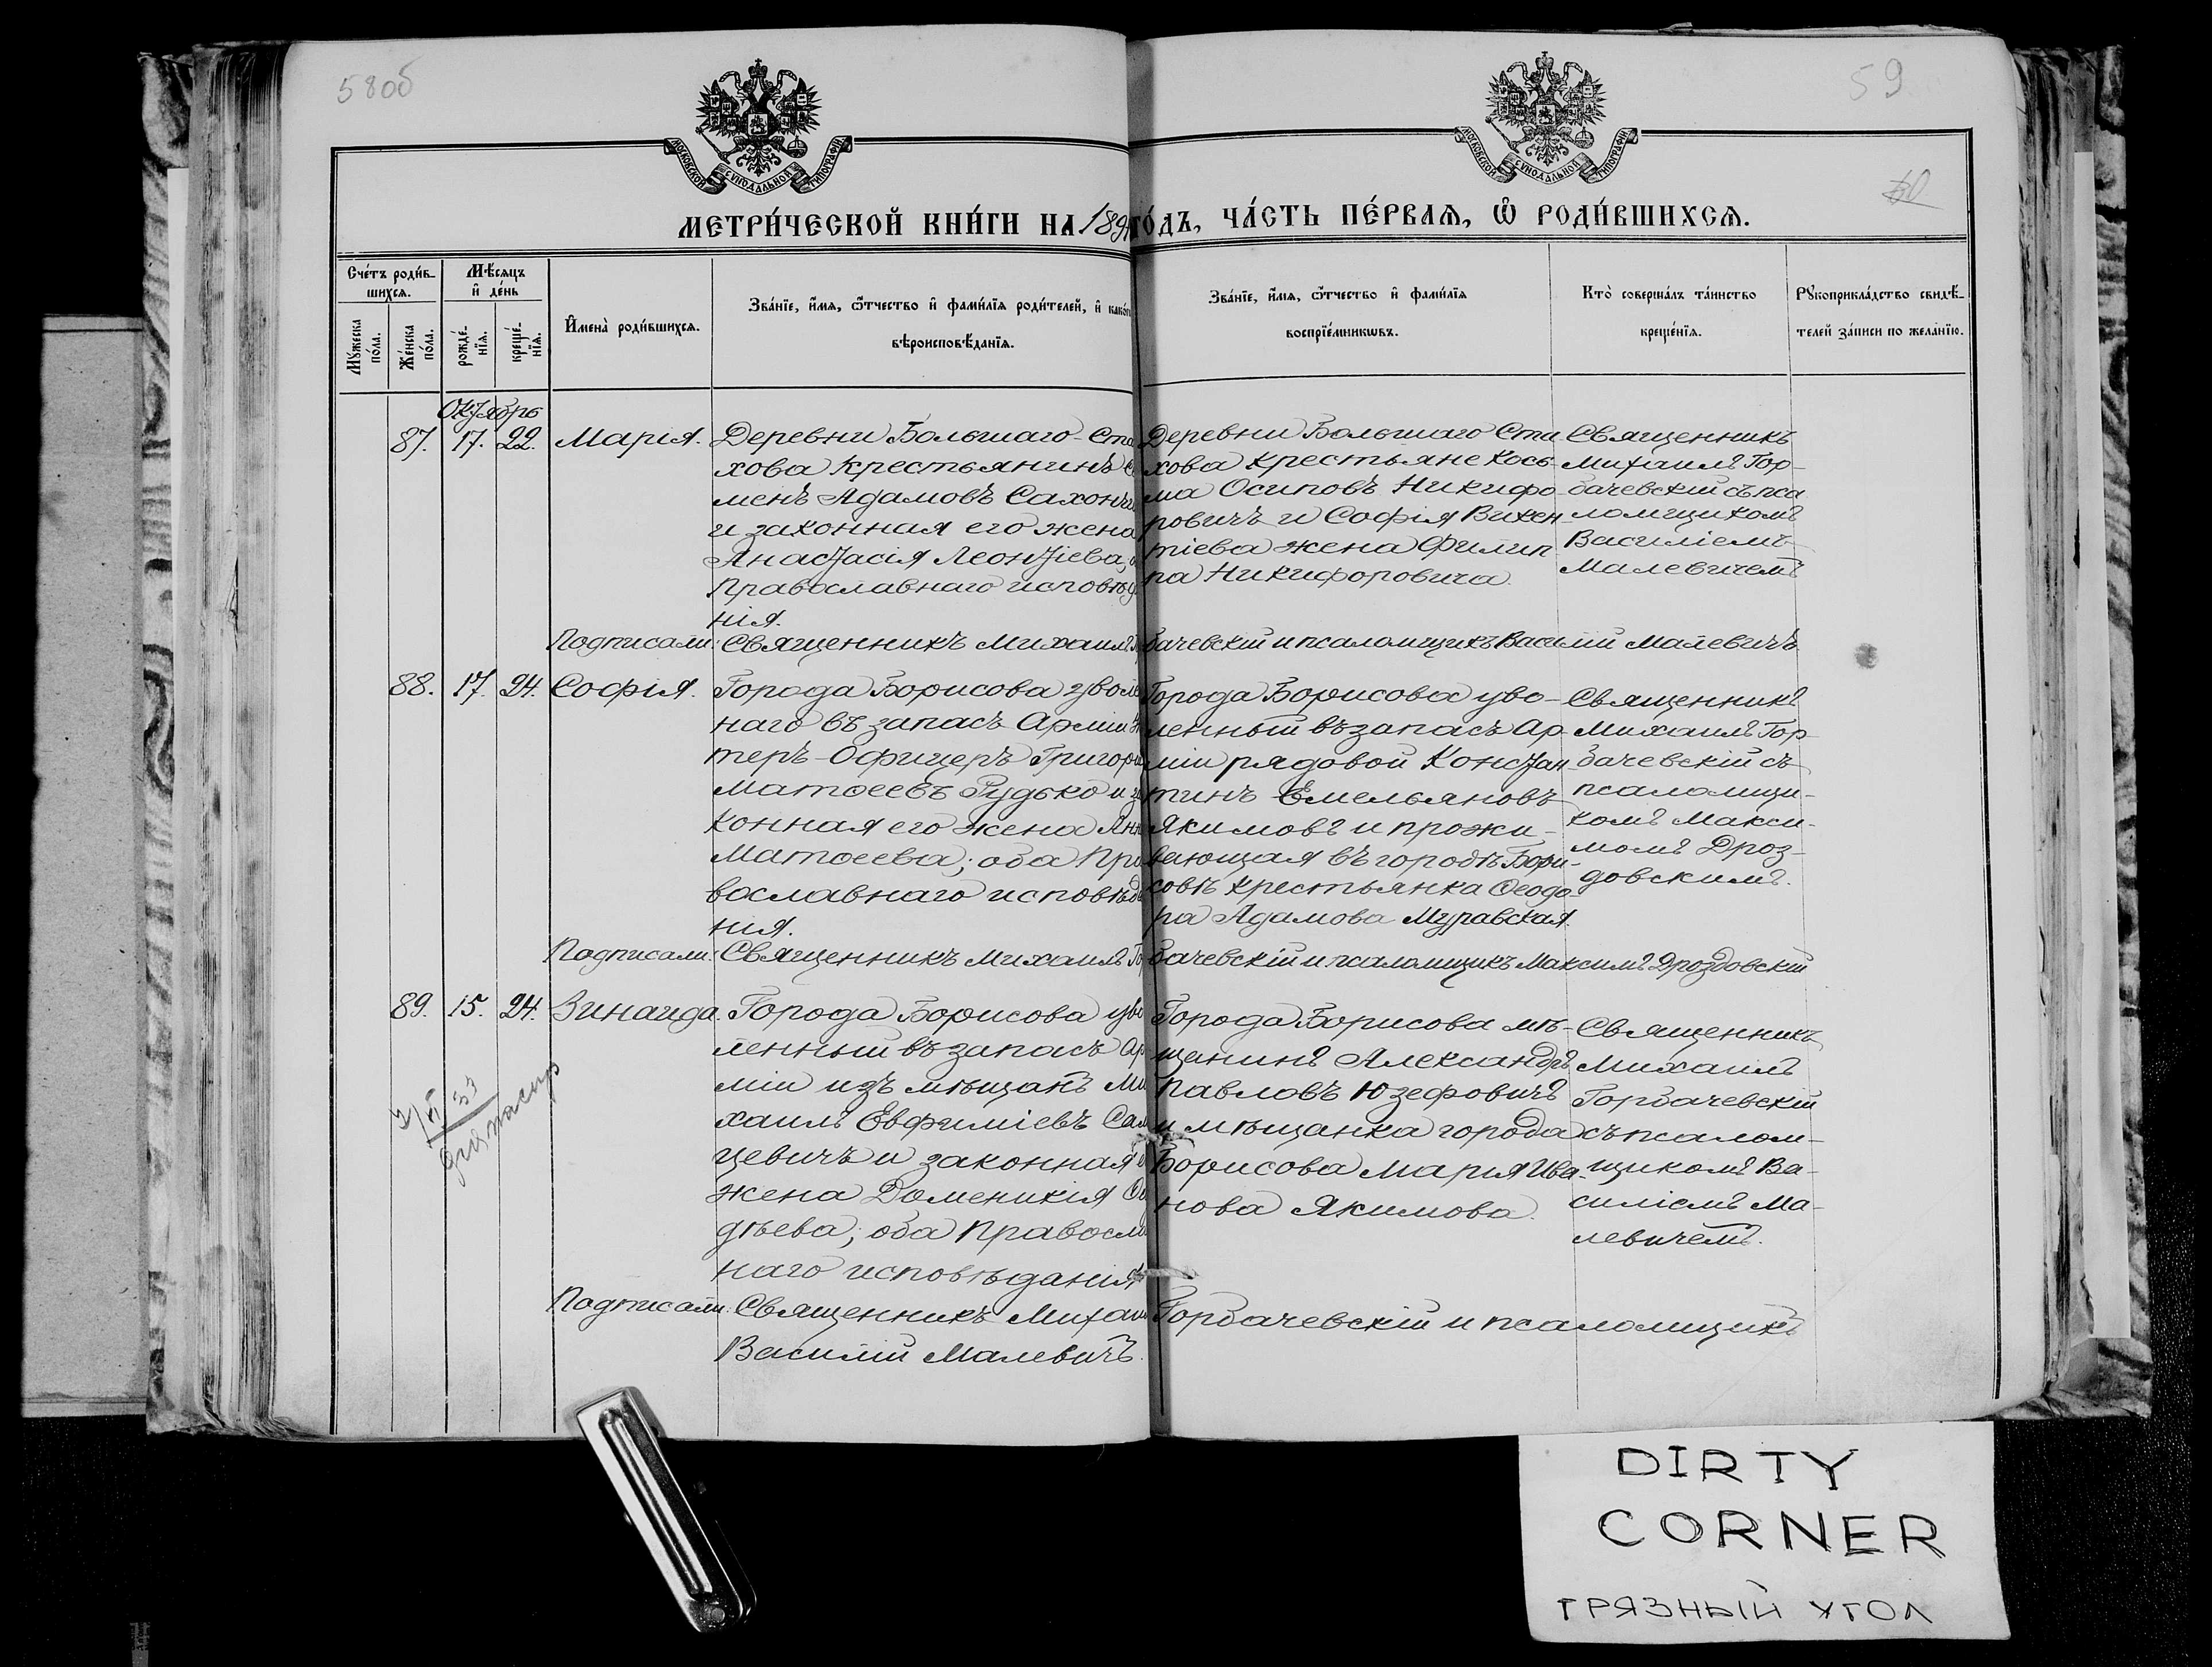 58об
59
60
МОСКОВСКОЙ СѴНОДАЛЬНОЙ ТИПОГРАФІИ
МОСКОВСКОЙ СѴНОДАЛЬНОЙ ТИПОГРАФІИ
МЕТРИ́ЧЕСКОЙ КНИ́ГИ НА 189
ГО́ДЪ, ЧА́СТЬ ПЕ́РВАѦ, Ѡ҆ РОДИ́ВШИХСѦ.
Сче́тъ роди́в-
шихсѧ.
Мꙋ́жеска по́ла.
Же́нска по́ла.
Мѣ́сѧцъ
и҆ де́нь
рожде́-нїѧ.
креще́-нїѧ.
И҆мена̀ роди́вшихсѧ.
Зва́нїе, и҆́мѧ, ѻ҆́тчество и҆ фами́лїѧ роди́телей, и҆ како́г
вѣроисповѣ́данїѧ.
Зва́нїе, и҆́мѧ, ѻ҆́тчество и҆ фами́лїѧ
воспрїе́мникѡвъ.
Кто̀ соверша́лъ та́инство
креще́нїѧ.
Рꙋкоприкла́дство свидѣ́-
телей за́писи по жела́нїю.
Октябрь
87. 17. 22. Марія.
Деревни Большаго-Ста
хова крестьянинъ С
менъ Адамовъ Сахончи
и законная его жена
Анастасія Леонтіева,
Православнаго исповѣд
нія.
Деревни Большаго Ста
хова крестьяне Кось-
ма Осиповъ Никифо-
ровичъ и Софія Викен
тіева жена Филип
па Никифоровича.
Священникъ
Михаилъ Гор-
бачевскій съ пса
ломщикомъ
Василіемъ
Малевичемъ
Подписали: Священникъ Михаилъ Горбачевскій и псаломщикъ Василій Малевичъ
88. 17. 24. Софія.
Города Борисова уволе
наго въ запасъ Арміи Ун
теръ-Офицеръ Григорій
Матѳеевъ Рудько и за
конная его жена Анн
Матѳеева; оба Пра
вославнаго исповѣда
нія.
Города Борисова уво-
ленный въ запасъ Ар-
міи рядовой Констан
тинъ Емельяновъ
Якимовъ и прожи-
вающая въ городѣ Бори-
совѣ крестьянка Ѳеодо
ра Адамова Муравская.
Священникъ
Михаилъ Гор-
бачевскій съ
псаломщи-
комъ Макси-
момъ Дроз-
довскимъ.
Подписали: Священникъ Михаилъ Горбачевскій и псаломщикъ Максимъ Дроздовскій
89. 15. 24. Зинаида.
Города Борисова уво
ленный въ запасъ Ар-
міи изъ мѣщанъ Ми
хаилъ Евфиміевъ Сам
цевичъ и законная е
жена Доменикія Ѳа
дѣева; оба Правосла
наго исповѣданія
Города Борисова мѣ-
щанинъ Александръ
Павловъ Юзефовичъ
и мѣщанка города
Борисова Марія Ива-
нова Якимова.
Священникъ
Михаилъ
Горбачевскій
съ псалом-
щикомъ Ва-
силіемъ Ма-
левичемъ.
Подписали: Священникъ Михаилъ Горбачевскій и псаломщикъ
Василій Малевичъ.
DIRTY
CORNER
ГРЯЗНЫЙ УГОЛ